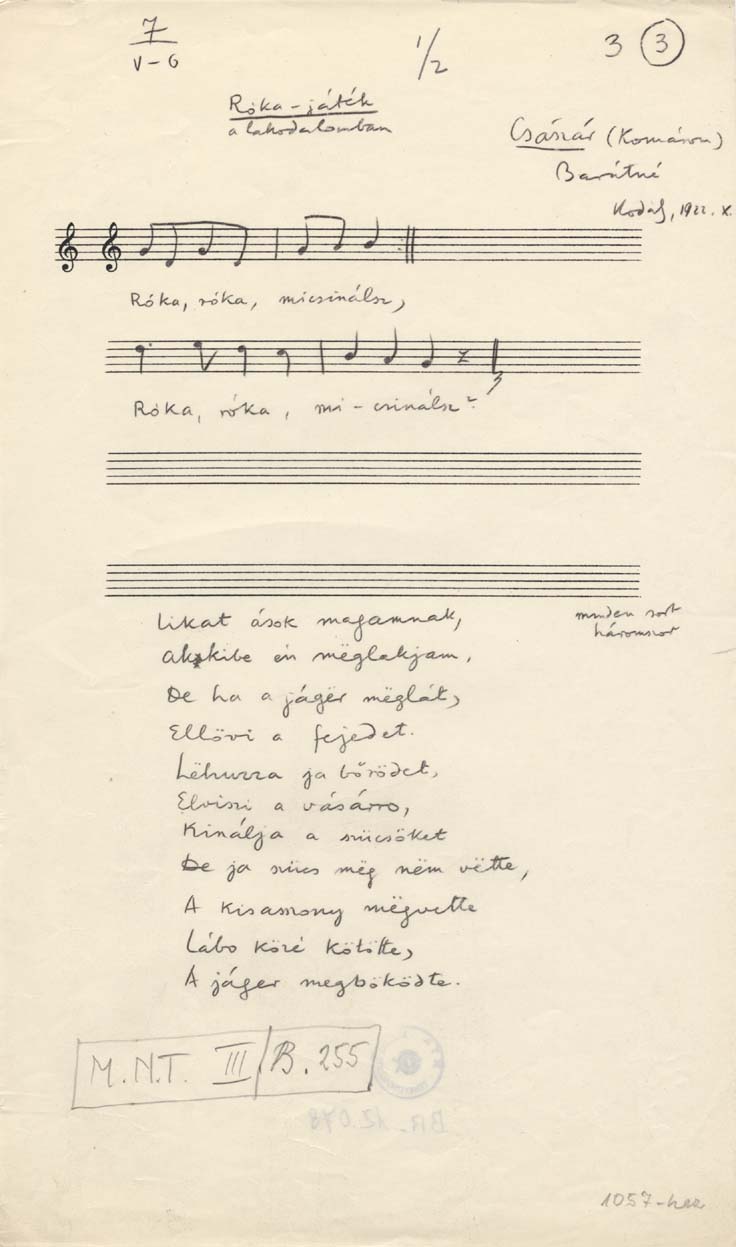 7
V-G
1/2
3 3
Róka-játék
a lakodalomban
Császár (Komárom)
Barátné
Kodály, 1922. X.
Róka, róka, micsinálsz,
Róka, róka, mi-csinálsz?
Likat ások magamnak,
minden sort
háromszor
akkibe én mëglakjam,
De ha a jágër mëglát,
Ellövi a fejedet.
Lëhuzza ja bőrödet,
Elviszi a vásárro,
Kinálja a szücsöket
De ja szücs mëg nëm vëtte,
A kisasszony mëgvette
Lábo köré kötötte,
A jáger megböködte.
M.N.T. III/B. 255
BR-12.078